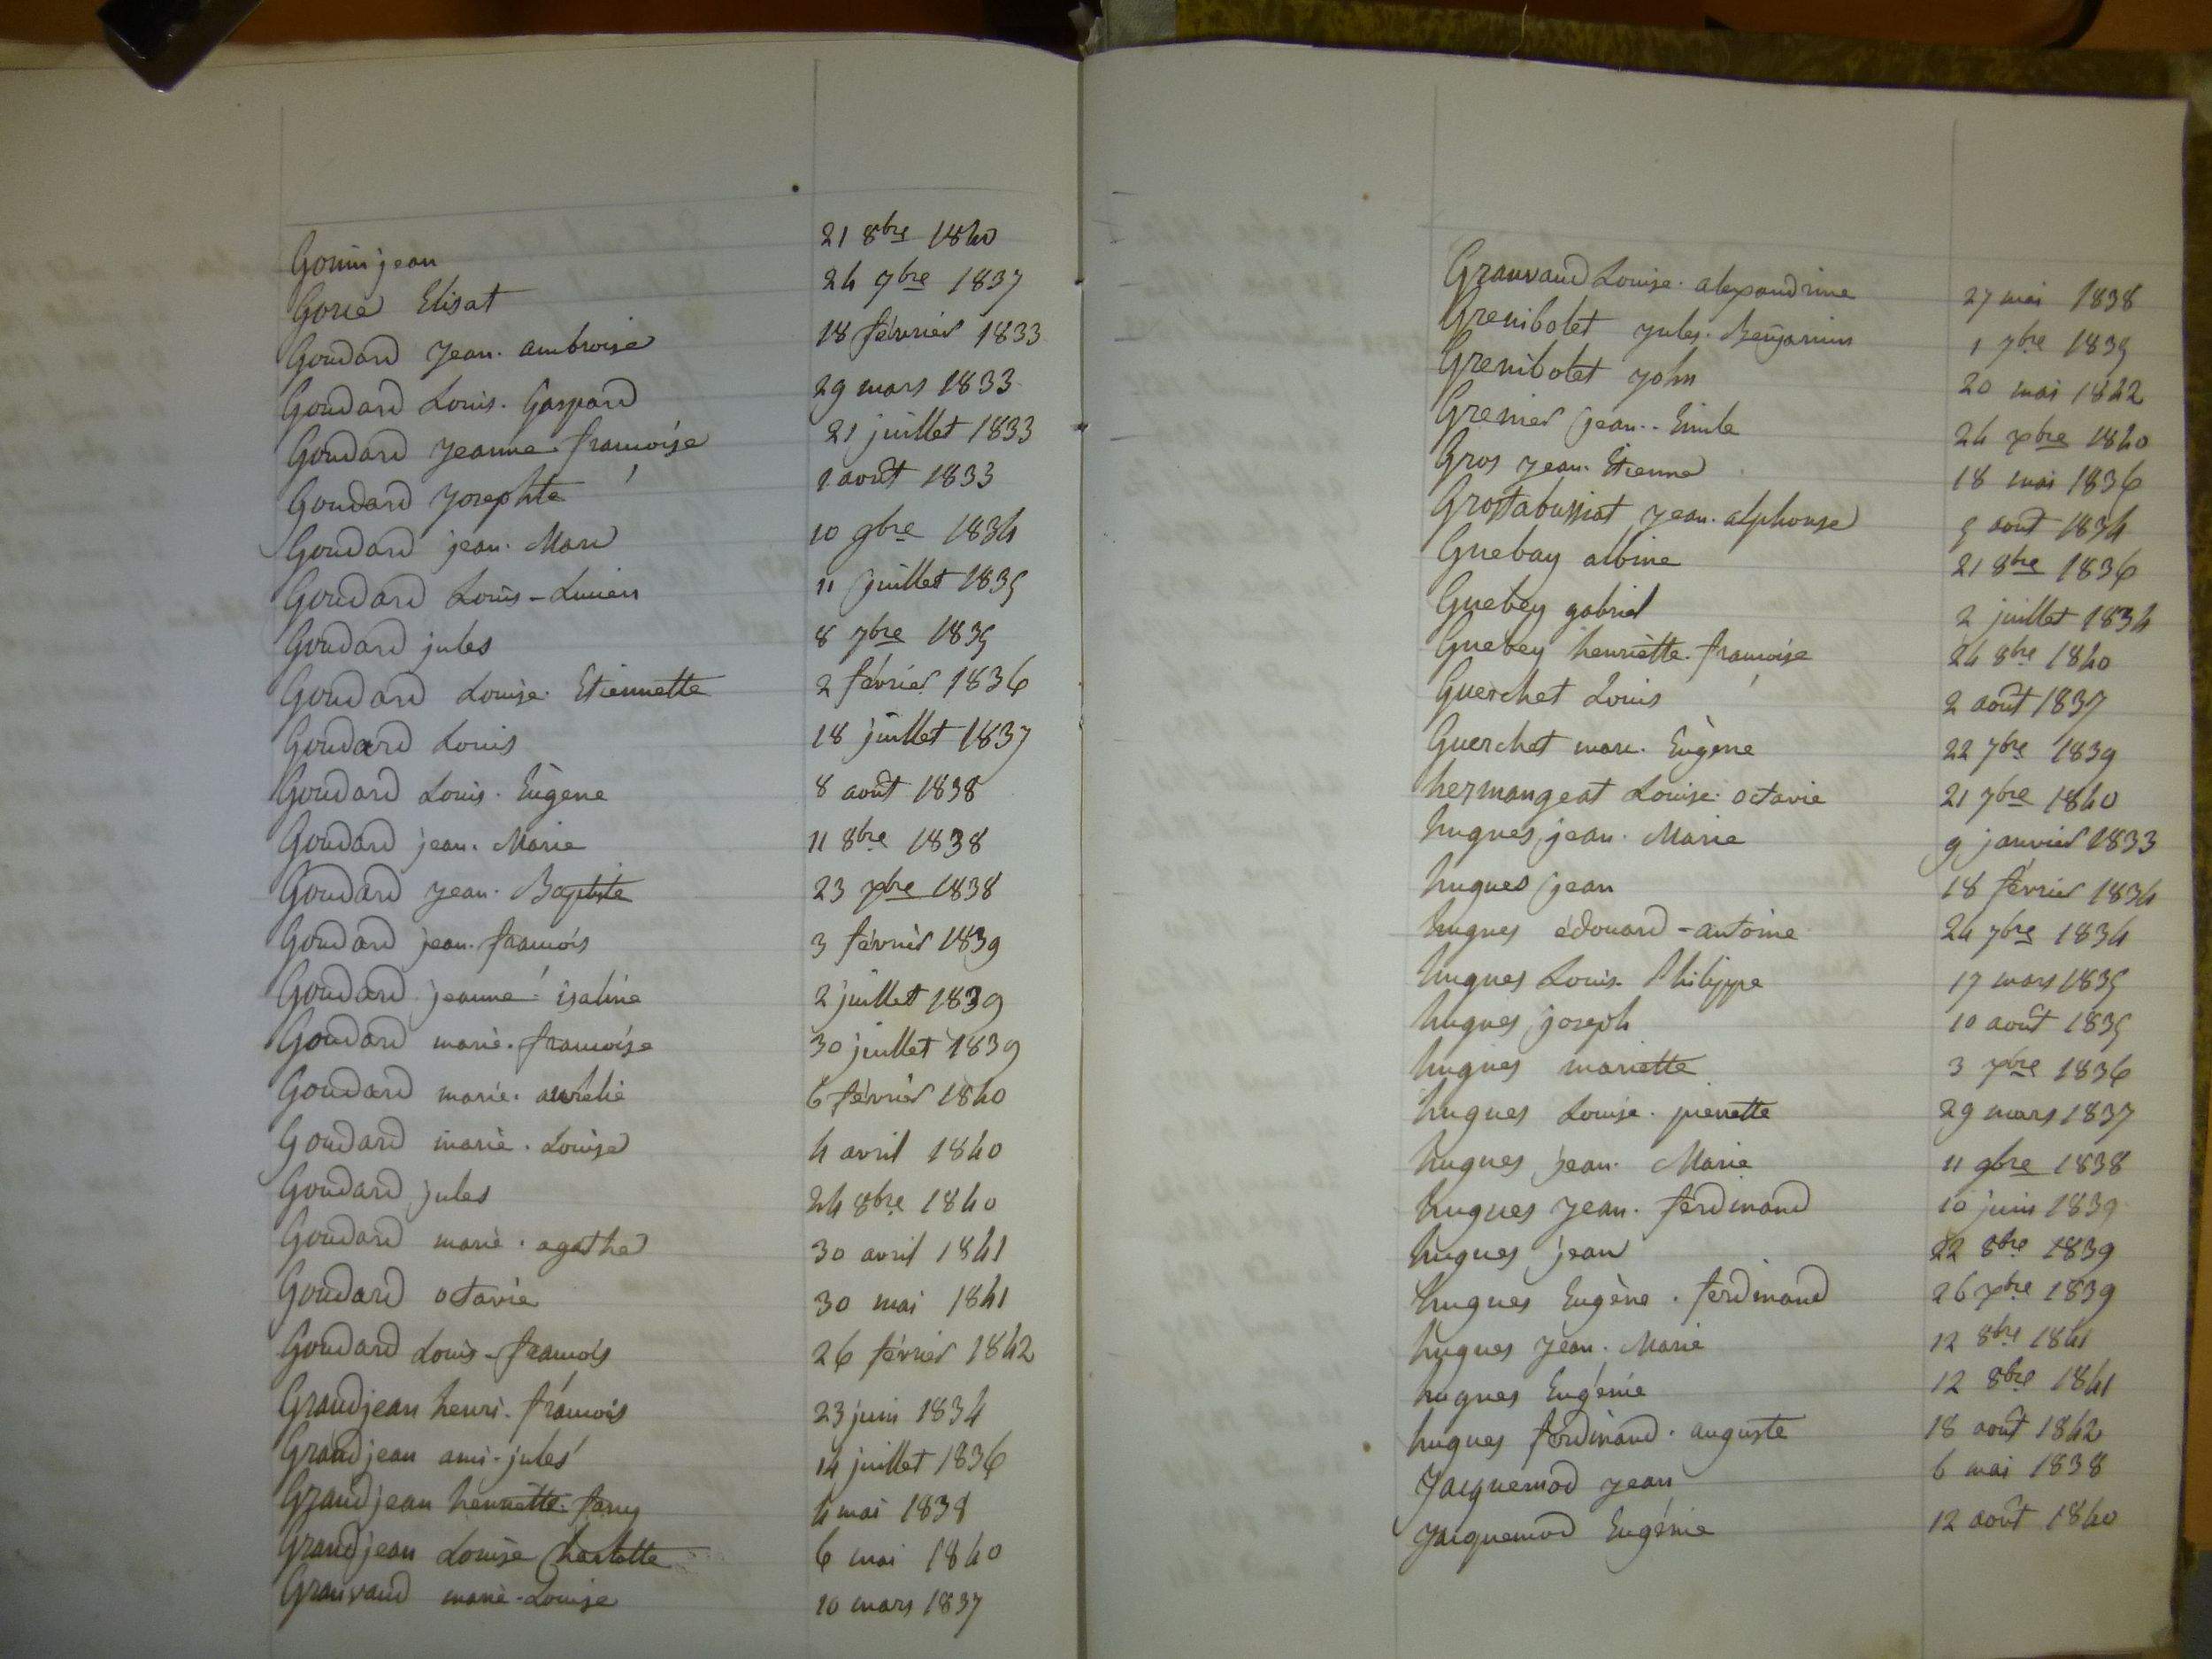 Gonin jean 21 8bre 1840
Goree Elisat 24 9bre 1837
Goudard Jean. ambroise 18 février 1833
Goudard Louis. Gaspard 29 mars 1833
Goudard Jeanne. françoise 21 juillet 1833
Goudard Josephte 1 août 1833
Goudard jean. Marc 10 9bre 1834
Goudard Louis-Lucien 11 juillet 1835
Goudard jules 8 7bre 1835
Goudard Louise. Etiennette 2 février 1836
Goudard Louis 18 juillet 1837
Goudard Louis. Eugène 8 août 1838
Goudard jean. Marie 11 8bre 1838
Goudard Jean. Baptiste 23 xbre 1838
Goudard jean. françois 3 février 1839
Goudard jeanne. isaline 2 juillet 1839
Goudard marie. françoise 30 juillet 1839
Goudard marie. aurélie 6 février 1840
Goudard marie. Louise 4 avril 1840
Goudard jules 24 8bre 1840
Goudard marie. agathe 30 avril 1841
Goudard octavie 30 mai 1841
Goudard Louis-françois 26 février 1842
Grandjean henri. françois 23 juin 1834
Grandjean ami-jules 14 juillet 1836
Grandjean henriette. fany 4 mai 1838
Grandjean Louise Charlotte 6 mai 1840
Granvaud marie-Louise 10 mars 1837
Granvaud Louise. alexandrine 27 mai 1838
Grenibolet Jules. Benjamin 1 7bre 1835
Grenibolet John 20 mai 1842
Grenier jean.. Emile 24 xbre 1840
Gros Jean. Etienne 18 mai 1836
Grostabussiat Jean. alphonse 5 août 1834
Guebay albine 21 8bre 1836
Guebey gabriel 2 juillet 1834
Guebey henriette. françoise 24 8bre 1840
Guerchet Louis 2 août 1837
Guerchet marc. Eugène 22 7bre 1839
hermangeat Louise. octavie 21 7bre 1840
hugues jean. Marie 9 janvier 1833
hugues jean 18 février 1834
hugues édouard-antoine 24 7bre 1834
hugues Louis. Philippe 17 mars 1835
hugues joseph 10 août 1835
hugues mariette 3 xbre 1836
hugues Louise. pierrette 29 mars 1837
hugues jean. Marie 11 9bre 1838
hugues Jean. ferdinand 10 juin 1839
hugues jean 22 8bre 1839
hugues Eugène. ferdinand 26 xbre 1839
hugues Jean. Marie 12 8bre 1841
hugues Eugénie 12 8bre 1841
hugues ferdinand. auguste 18 août 1842
Jacquemod Jean 6 mai 1838
Jacquemod Eugénie 12 août 1840